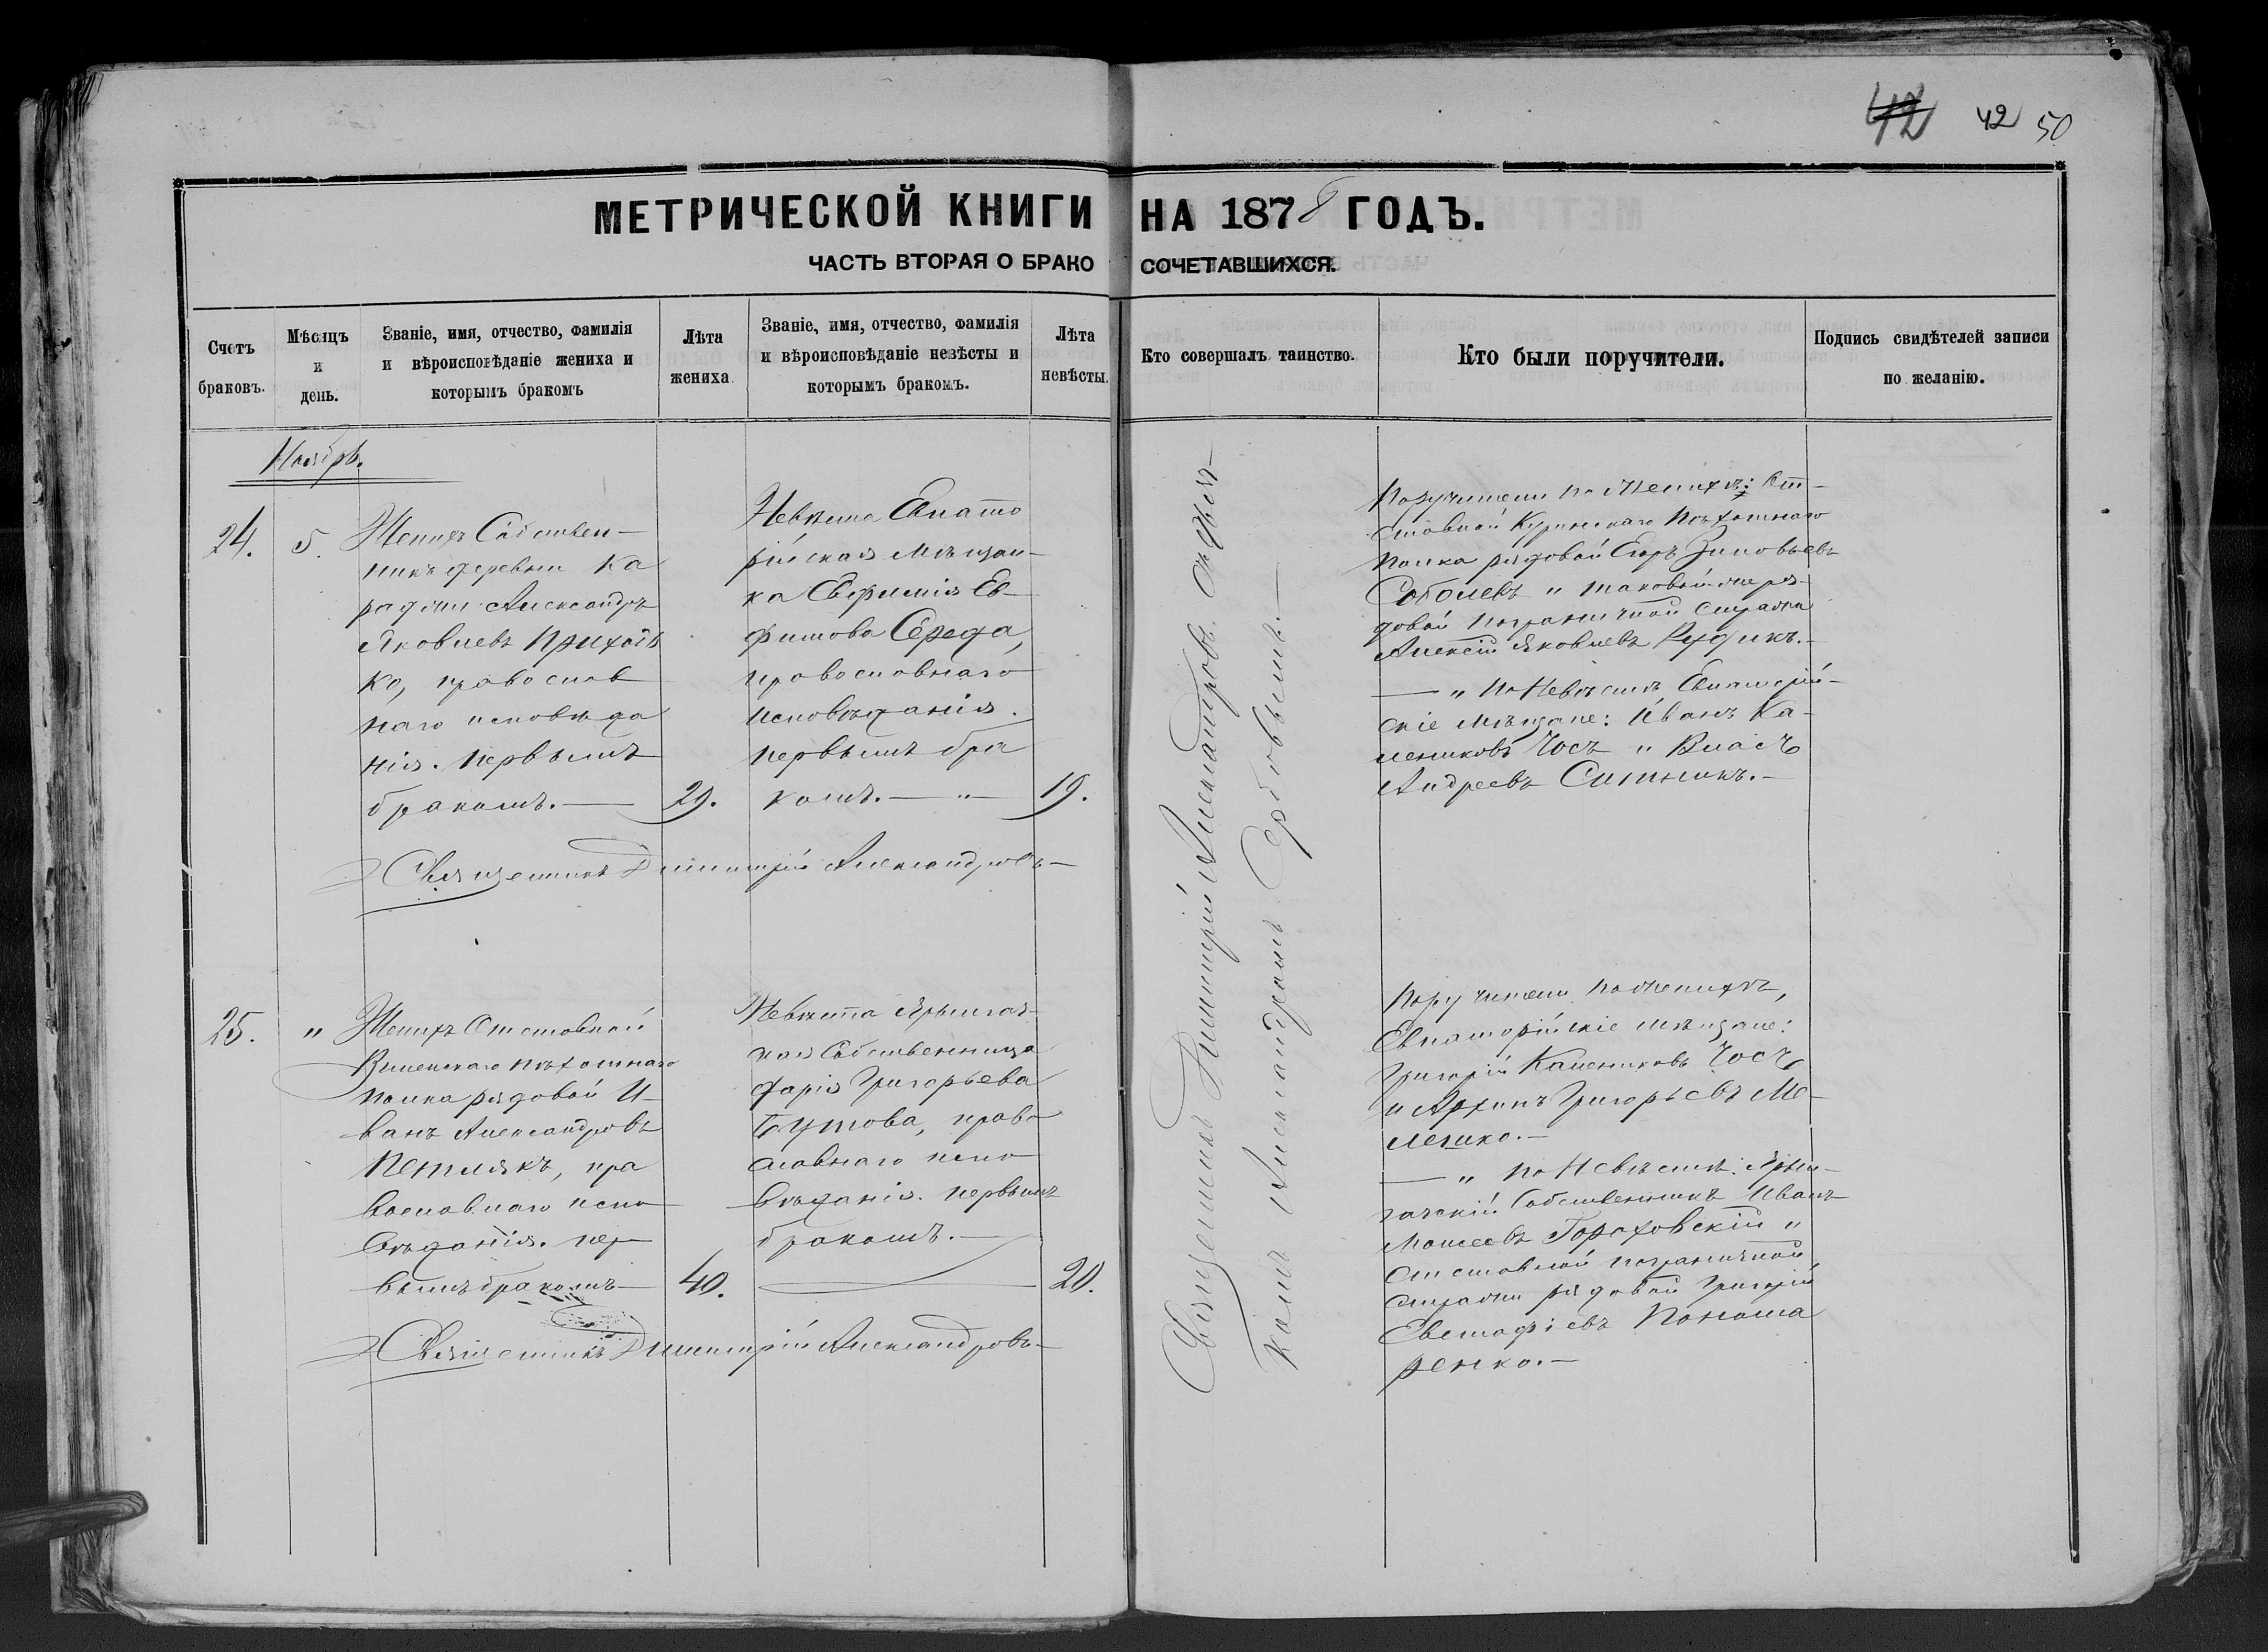 42 42 50
МЕТРИЧЕСКОЙ КНИГИ НА 1878 ГОДЪ.
ЧАСТЬ ВТОРАЯ О БРАКОСОЧЕТАВШИХСЯ.
Счетъ браковъ.
Мѣсяцъ и день.
Званіе, имя, отчество, фамилія
и вѣроисповѣданіе жениха и
которымъ бракомъ
Лѣта жениха
Званіе, имя, отчество, фамилія
и вѣроисповѣданіе невѣсты и
которымъ бракомъ.
Лѣта невѣсты.
Кто совершалъ таинство.
Кто были поручители.
Подпись свидѣтелей записи
по желанію.
Ноябрь.
24.
5.
Женихъ Собствен-
никъ деревни Ка
раджи Александръ
Яковлевъ Приходь
ко, православ
наго исповѣда
нія. Первымъ
бракомъ.—
29.
Невѣста Евпато
рійская мѣщан-
ка Евфимія Ев-
фимова Середа,
православнаго
исповѣданія.
первымъ бра
комъ. — " —
19.
Священникъ Димитрій Александровъ—
Священникъ Димитрій Александровъ, съ Дьяч-
комъ Александромъ Сербовымъ.—
Поручители по Женихѣ: От-
ставной Куринскаго Пѣхотнаго
полка рядовой Егоръ Зиновьевъ
Соболевъ и таковый-же ря-
довой пограничной стражи
Алексій Яковлевъ Рудикъ.—
— " По Невѣстѣ, Евпаторій-
скіе мѣщане: Иванъ Ка-
лениковъ Чосъ и Власъ
Андреевъ Ситникъ.—
25.
"
Женихъ Отставной
Виленскаго пѣхотнаго
полка рядовой И-
ванъ Александровъ
Петлякъ, пра
вославнаго испо
вѣданія. пер
вымъ бракомъ—
40.
Невѣста Ярылгач-
ная Собственница
Дарія Григорьева
Бутова, право
славнаго испо
вѣданія. первымъ
бракомъ.—
20.
Священникъ Димитрій Александровъ—
Поручители по женихѣ,
Евпаторійскіе мѣщане:
Григорій Калениковъ Чосъ
и Архипъ Григорьевъ Ме-
лешко.—
— " По Невѣстѣ: Ярыл-
гачскій Собственникъ Иванъ
Моисеевъ Гороховскій и
Отставной пограничной
стражи рядовой Григорій
Евстафіевъ Понома
ренко.—